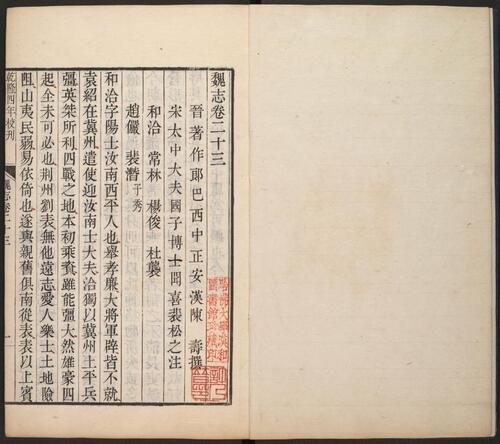 魏志卷二十三
晉著作郎巴西中正安漢陳　壽撰
宋太中大夫國子博士聞喜裴松之注
和洽　常林　楊俊　杜襲
趙儼　裴潛子秀
和洽字陽士汝南西平人也舉孝廉大將軍辟皆不就
袁紹在冀州遣使迎汝南士大夫洽獨以冀州土平兵
彊英桀所利四戰之地本初乘資雖能彊大然雄豪四
起全未可必也荊州劉表無他遠志愛人樂士土地險
阻山夷民弱易依倚也遂與親舊俱南從表表以上賓
乾隆四年校刊
魏志卷二十三
一
哈佛大學漢和
圖書館珍藏印